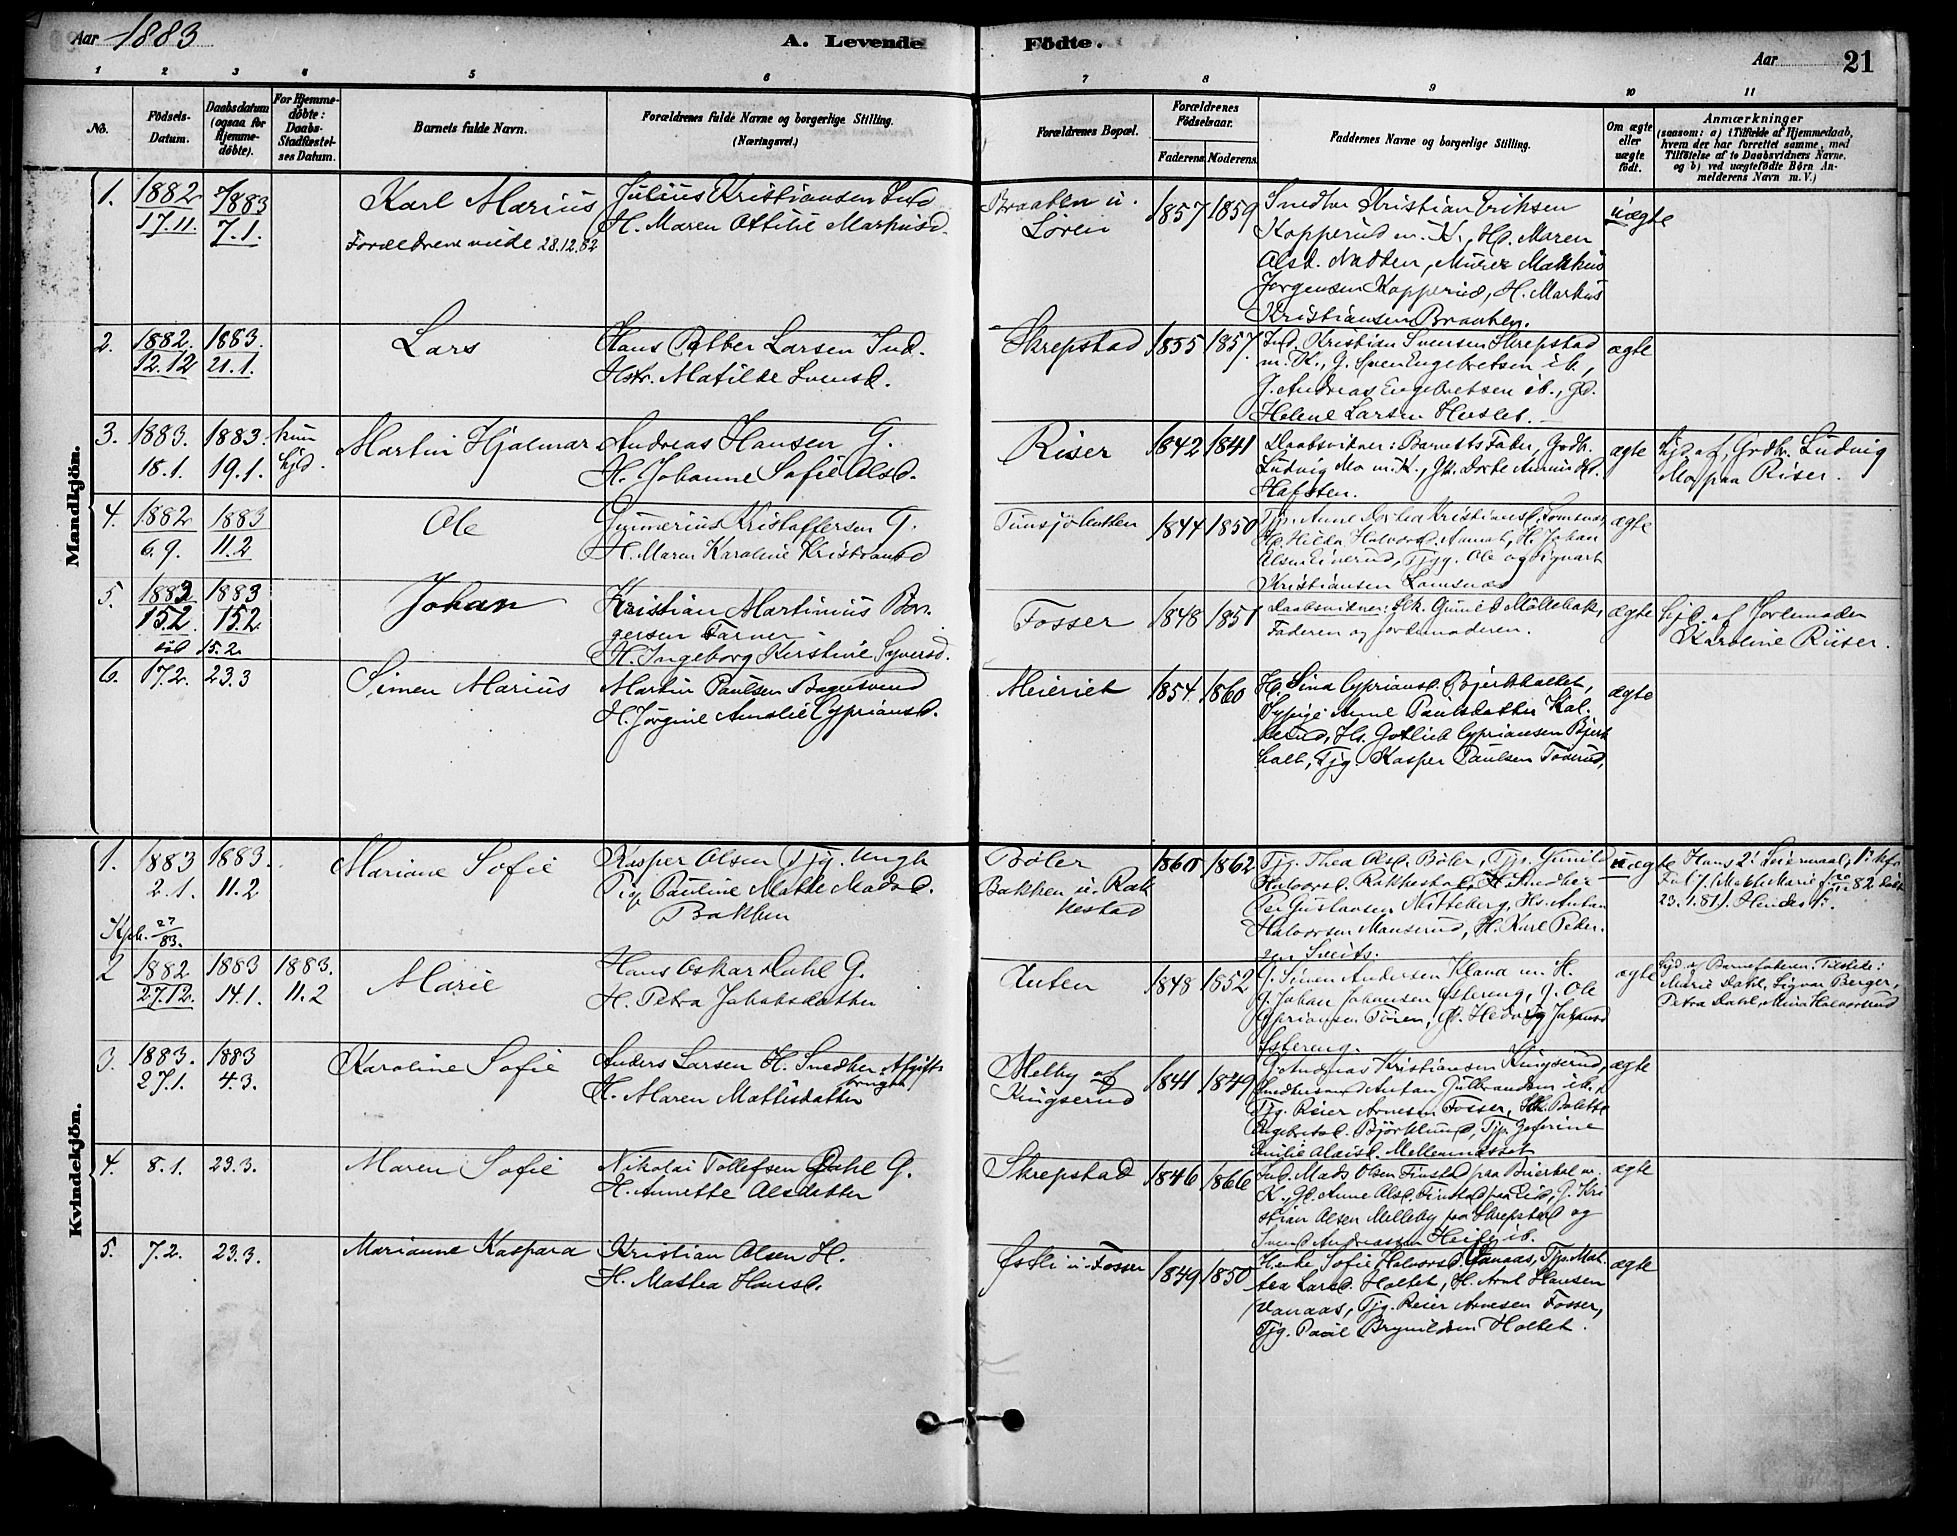 Aar 1883
A. Levende Födte.
Aar 21
1 2 3 4 5 6 7 8 9 10 11
No.
Födsels-Datum.
Daabsdatum (ogsaa for Hjemme-döbte).
For Hjemme-döbte: Daabs-Stadfæstel-ses Datum.
Barnets fulde Navn.
Forældrenes fulde Navne og borgerlige Stilling. (Næringsvei.)
Forældrenes Bopæl.
Forældrenes Födselsaar.
Faderens. Moderens.
Faddernes Navne og borgerlige Stilling.
Om ægte eller uægte födt.
Anmærkninger
(saasom: a) i Tilfælde af Hjemmedaab,
hvem der har forrettet samme, med
Tilföielse af to Daabsvidners Navne,
og b) ved uægtefödte Börn An-
melderens Navn m. V.)
Mandkjön.
1. 1882 17.11. 1883 7.1. Karl Marius
Forældrene viede 28.12.82
Julius Kristiansen Ind
H. Maren Ottilie Markusd.
Braaten u. Løren 1857 1859
Snedker Kristian Eriksen
Kopperud m. K., Hd. Maren
Olsd. , Murer Markus
Jørgensen Kopperud, H. Markus
Kristiansen Braaten.
uægte
2. 1882. 12.12 1883. 21.1. Lars
Hans Petter Larsen Ind.
Hstr. Matilde Svensd.
Skrepstad 1855 1857
Ind. Kristian Svensen Skrepstad
m. K., G. Sven Engebretsen ib.,
J. Andreas Engebretsen ib., Gd.
Helene Larsen Huslet.
ægte
3. 1883. 18.1. 1883. 19.1. kun hjd. Martin Hjalmar
Andreas Hansen G.
H. Johanne Sofie Olsd.
Riser 1842 1841
Daabsvidner: Barnets Fader, Grdbr.
Ludvig Mo m. K., Gk. Dorte
Hafsten.
ægte
hjd. af Grdbr. Ludvig
Mo paa Riser.
4. 1882 6.9. 1883 11.2 Ole
Gunnerius Kristoffersen G.
H. Maren Karoline Kristiansd
1844 1850
Tjp. Anne Kristiansd. Lomsnæs,
Hilda Halvorsd. , H. Johan
Olsen , Tjg. Ole og Sigvart
Kristiansen Lomsnæs
ægte
5. 1883 15.2 1883 15.2 Johan
Kristian Martinius Bør-
gersen Tarner
H. Ingeborg Kirstine Syversd.
Fosser 1848 1851
Daabsvidner: Gk. Møllebak,
Faderen og Jordemoderen.
ægte
hjd. af Jordemoder
Karoline Riiser.
6. 17.2. 23.3 Simen Marius
Martin Paulsen
H. Jørgine Amalie Cypriansd.
Meieriet 1854 1860
H. Sina Cypriansd. Bjerkholtet,
Sypige Anne Paulsdatter Kal-
, Hs. Gotlieb Cypriansen Bjerk
holt, Tjg. Kasper Paulsen Toverud,
ægte
Kvindekjön.
1. 1883 2.1. 1883. 11.2 Mariane Sofie
Kpk. 27/83.
Kasper Olsen Tjg. Ungk
Pig. Pauline Mathe Madsd.
Bakken
Bøler
Bakken u. Rak
kestad
1860 1862
Tjg. Thea Olsd. Bøler, Tjp. Gunild
Halvorsd. Rakkestad, H. Snedker
Per Gustavsen Mitteberg, Hs. Anton
Halvorsen Mauserud, H. Karl Peder-
sen Smits.
uægte
Hans 2. Leiermaal,
23.1.81). Hendes 1.
2 1882 27.12. 1883 14.1. 1883. 11.2 Marie
Hans Oskar Dahl G.
H. Petra Jakobsdatter
1848 1852
G. Simen Andersen m. K.
G. Johan Johansen Østereng, G. Ole
Cypriansen , G. Hedvig Johansd
Østereng.
ægte
hjd. af Barnefaderen. Tilstede:
Marie Dahl, Sigvar Berger,
Petra Dahl, Mina Halvorsrud
3. 1883. 27.1. 1883 4.3. Karoline Sofie
Anders Larsen H. Snedker Afgifts
bruger
H. Maren Mattisdatter
Melby af
Kingserud
1841 1849
G. Andreas Kristiansen Kingserud,
Anton Gulbrandsen ib.
Tjg. Reier Arnesen Fosser, Bolette
Engebretsd. Bjørklund, Tjp. Josefine
Emilie Olaisd. Mellemmosset
ægte
4. 8.1. 23.3. Maren Sofie
Nikolai Tollefsen Dahl G.
H. Annette Olsdatter
Skrepstad 1846 1866
Ind. Mads Olsen Finstad paa m.
K., Gd. Anne Olsd. Finstad paa Eid, G. Kri
stian Olsen Melleby paa Skrepstad og
Svend Andreassen ib.
ægte
5. 7.2. 23.3. Marianne Kaspara
Kristian Olsen H.
H. Mathea Hansd.
Østli u. Fosser 1849 1850
Enke Sofie Halvorsd. Vanaas, Tjp. Mat-
hea Larsd. Holtet, H. Arnt Hansen
Vanaas, Tjg. Reier Arnesen Fosser,
Tjg. Paul Brynildsen Holtet.
ægte